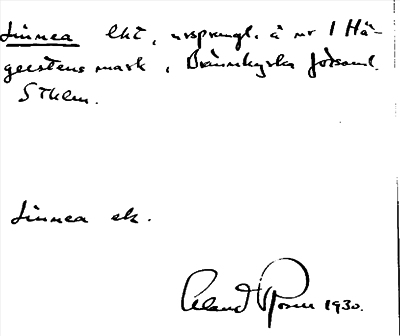 Linnea lht, ursprungl. å nr 1 Hä-
gerstens mark, Brännkyrka församl.
Sthlm.
Linnea ek.
1930.